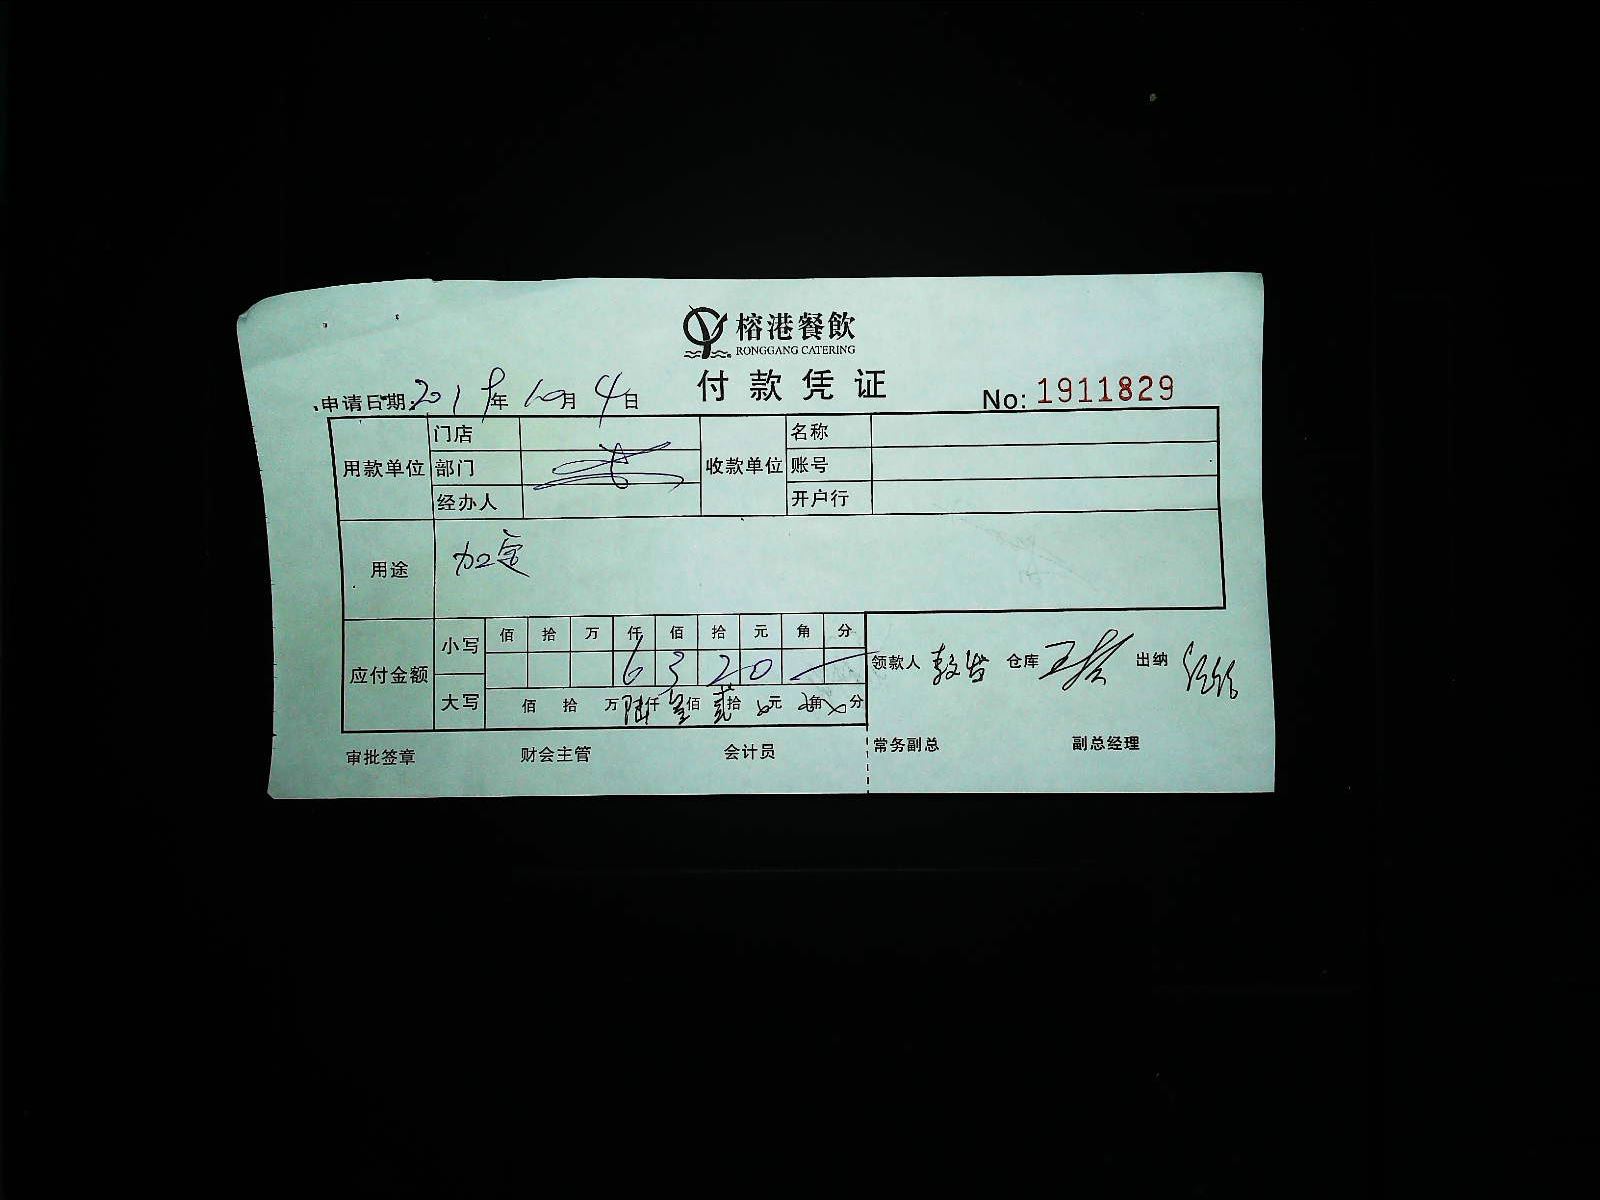 榕港餐飲
RONGGANG CATERING
付款凭证
申请日期: 2019年10月4日
No: 1911829
用款单位 门店 收款单位 名称
部门 账号
经办人 开户行
用途
应付金额 小写 佰 拾 万 仟 佰 拾 元 角 分
6 3 2 0
大写 佰 拾 万陆仟叁佰贰拾 元 角 分
领款人 仓库 王 出纳
审批签章 财会主管 会计员 常务副总 副总经理